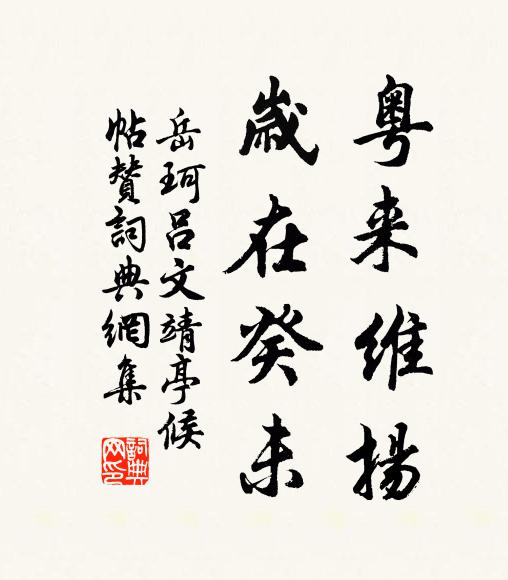 粤来维扬
歲在癸未
岳珂吕文靖亭候
帖贊詞典網集
詞典网印